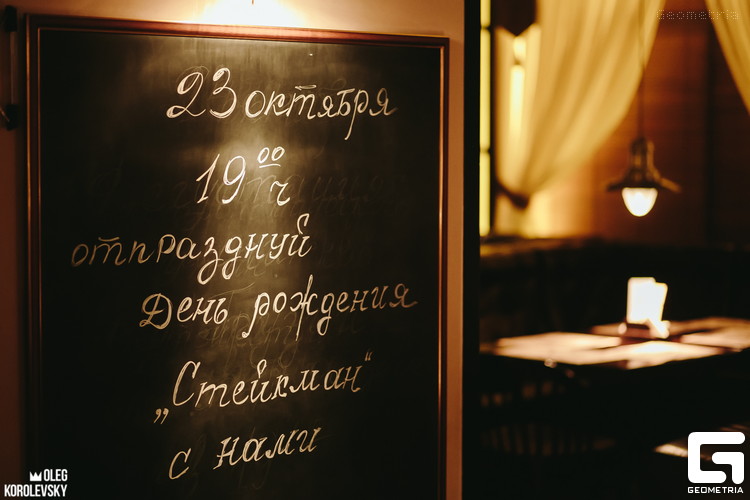 Geometria
23 октября
19⁰⁰ ч
отпразднуй
День рождения
„Стейкман“
с нами
OLEG
KOROLEVSKY
GEOMETRIA